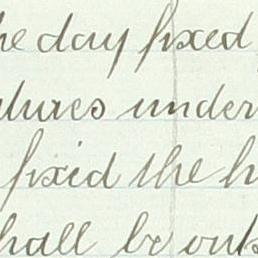 he day fixed
atures under
fixed the h
hall be outs